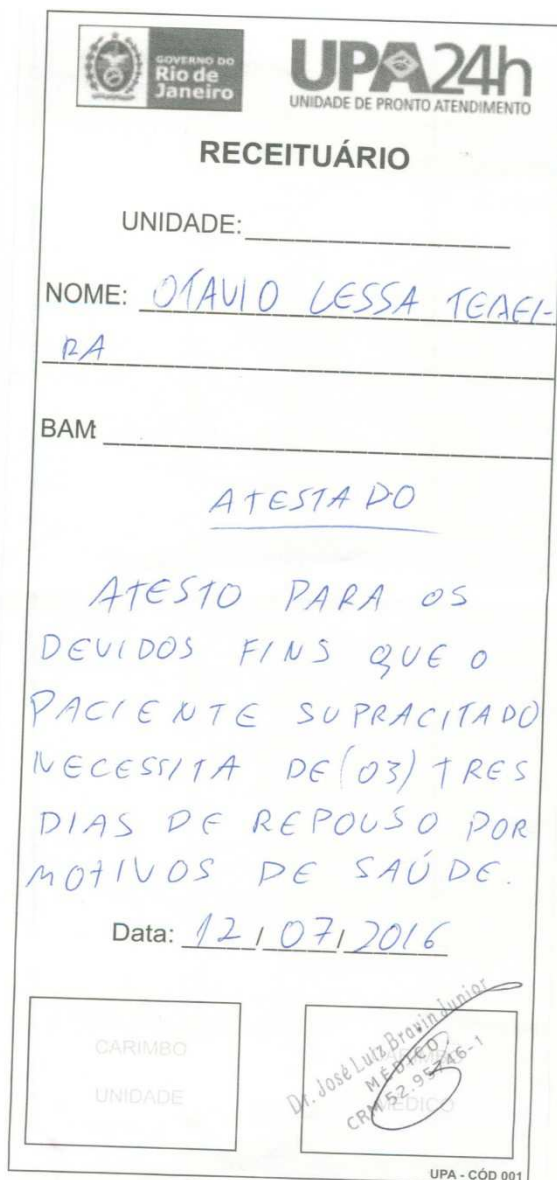 GOVERNO DO
Rio de
Janeiro
UPA24h
UNIDADE DE PRONTO ATENDIMENTO
RECEITUÁRIO
UNIDADE:
NOME: OTAVIO LESSA
RA
BAM:
ATESTADO
ATESTO PARA OS
DEVIDOS FINS QUE O
PACIENTE SUPRACITADO
NECESSITA DE (03) TRES
DIAS DE REPOUSO POR
MOTIVOS DE SAÚDE.
Data: 12/07/2016
CARIMBO
UNIDADE
Dr. José Luiz Bravin Junior
MÉDICO
CRM 52.95746-1
MÉDICO
UPA - CÓD 001